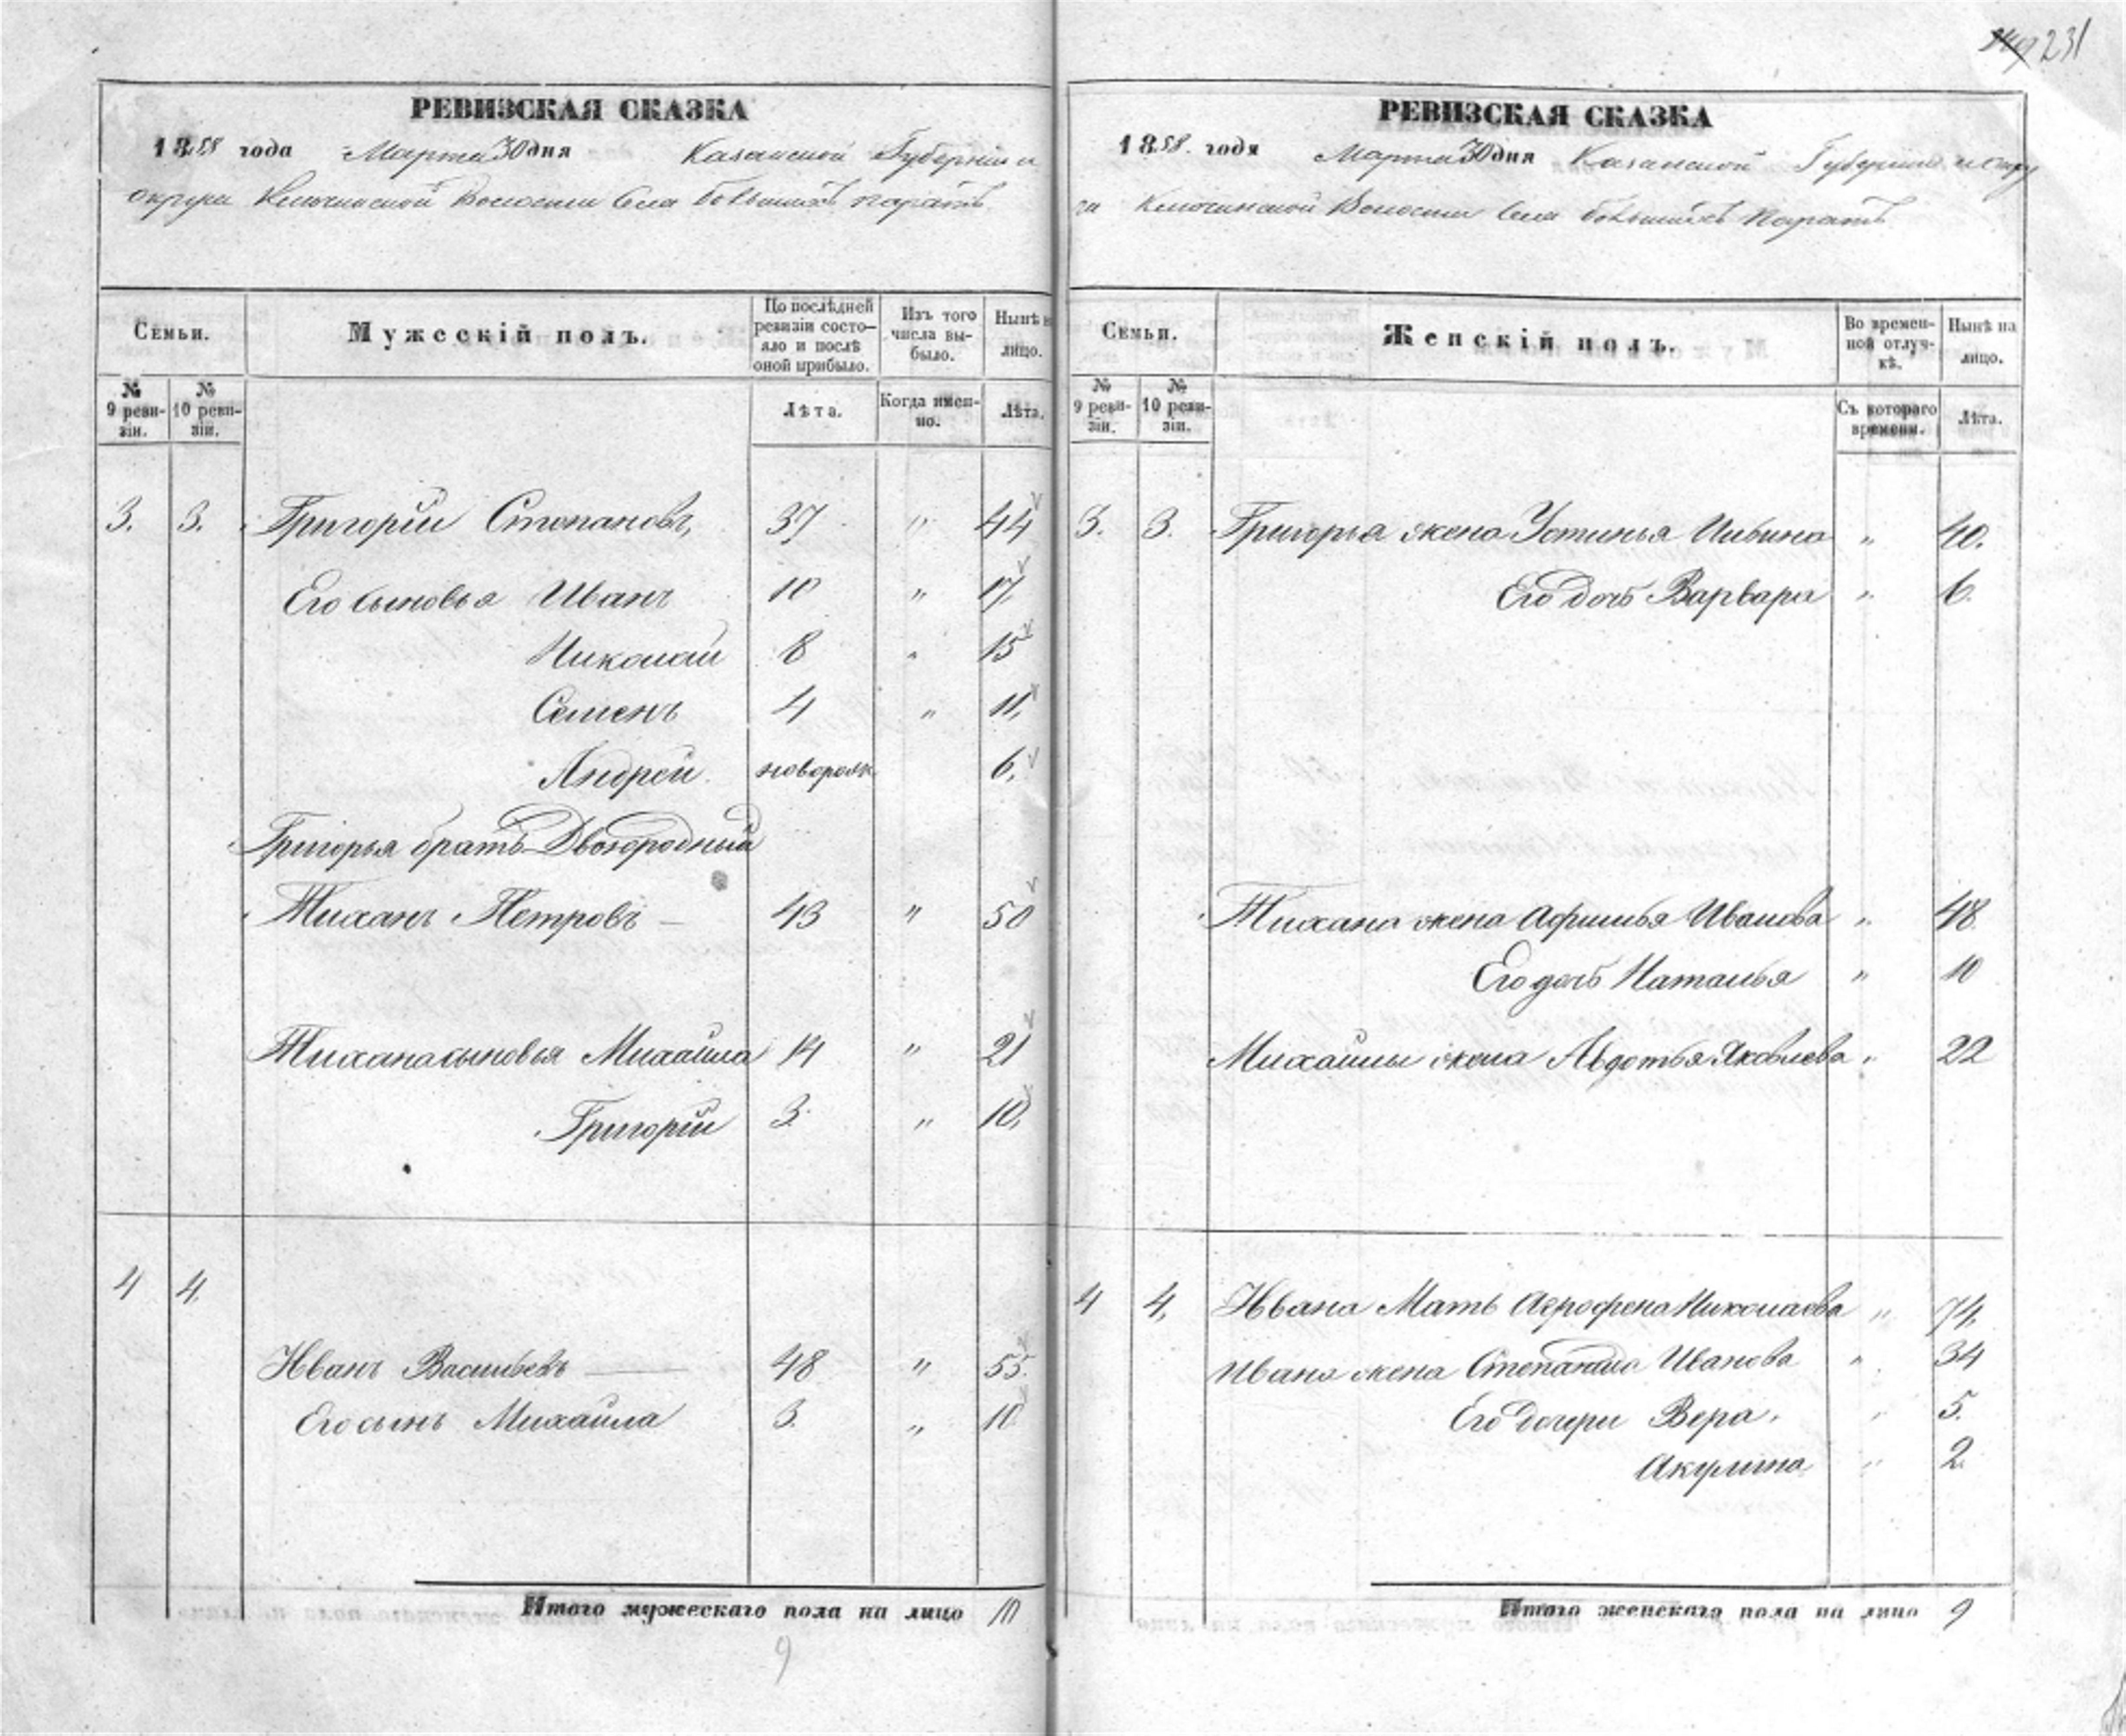 231
РЕВИЗСКАЯ СКАЗКА
1858 года Марта 30 дня Казанской Губерніи и
округи Ключинской Волости Села Большихъ Паратъ
Семьи.
Мужескій полъ.
По послѣдней ревизіи состо-
яло и послѣ
оной прибыло.
Изъ того
числа вы-
было.
Нынѣ
лицо.
№
9 реви-
зіи.
№
10 реви-
зіи.
Лѣта.
Когда имен-
но.
Лѣта.
3. 3. Григорій Степановъ, 37 " 44
Его сыновья Иванъ 10 " 17
Николай 8 " 15
Семенъ 4 " 11,
Андрей новорож 6,
Григорья братъ Двоюродный
Тиханъ Петровъ — 43 " 50
Тихана сыновья Михайла 14 " 21
Григорій 3. " 10,
4 4.
Иванъ Васильевъ — 48 " 55.
Его сынъ Михайла 3. " 10
Итого мужескаго пола на лицо 10
9
РЕВИЗСКАЯ СКАЗКА
1858. года Марта 30 дня Казанской Губерніи и окру
ги Ключинской Волости Села Большихъ Паратъ
Семьи.
Женскій полъ.
Во времен-
ной отлуч-
кѣ.
Нынѣ на
лицо.
№
9 реви-
зіи.
№
10 реви-
зіи.
Съ котораго
времени.
Лѣта.
3. 3. Григорья жена Устинья Ильина " 40.
Его дочь Варвара " 6.
Тихана жена Афимья Иванова " 48
Его дочь Наталья " 10
Михайлы жена Авдотья Яковлева " 22
4 4, Ивана Мать Агрофена Николаева " 74,
Ивана жена Степанида Иванова " 34
Его дочери Вера, " 5.
Акулина " 2.
Итого женскаго пола на лицо 9